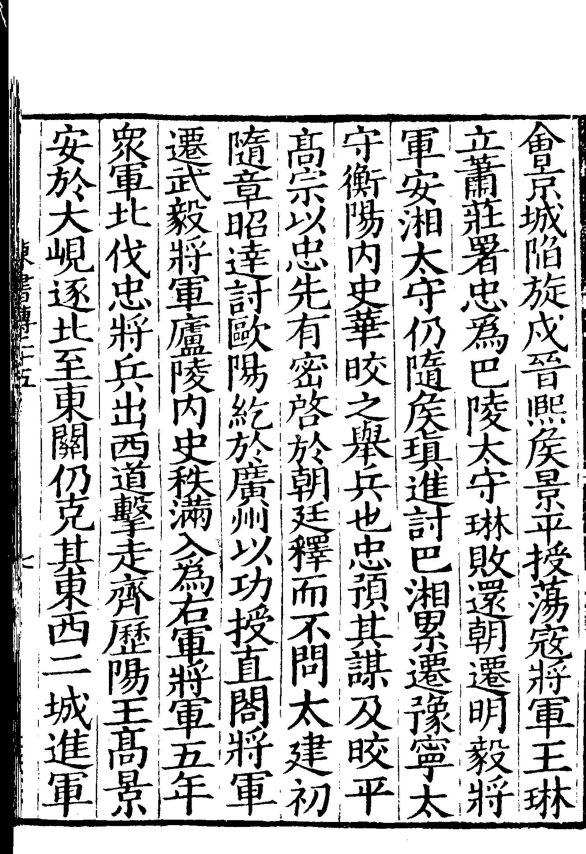 會京城陷旋戍晉熙矦景平授蕩寇將軍王琳
立蕭莊署忠爲巴陵太守琳敗還朝遷明毅將
軍安湘太守仍隨矦瑱進討巴湘累遷豫寧太
守衡陽内史華皎之舉兵也忠預其謀及皎平
髙宗以忠先有密啓於朝廷釋而不問太建初
隨章昭達討歐陽紇於廣州以功授直閤將軍
遷武毅將軍廬陵内史秩滿入爲右軍將軍五年
衆軍北伐忠將兵出西道擊走齊歷陽王髙景
安於大峴逐北至東關仍克其東西二城進軍
陳書傳二十五
七